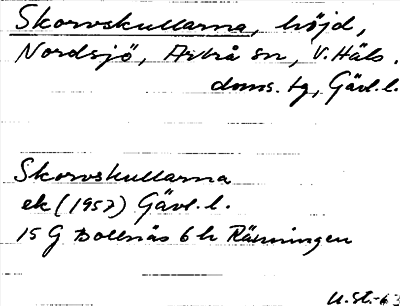 Skorvskullarna, höjd,
Nordsjö, Arbrå sn, V. Häls.
doms. tg, Gävl. l.
Skorvskullarna
ek (1957) Gävl. l.
15 G Bollnäs 6 hRänningen
U. St. -63